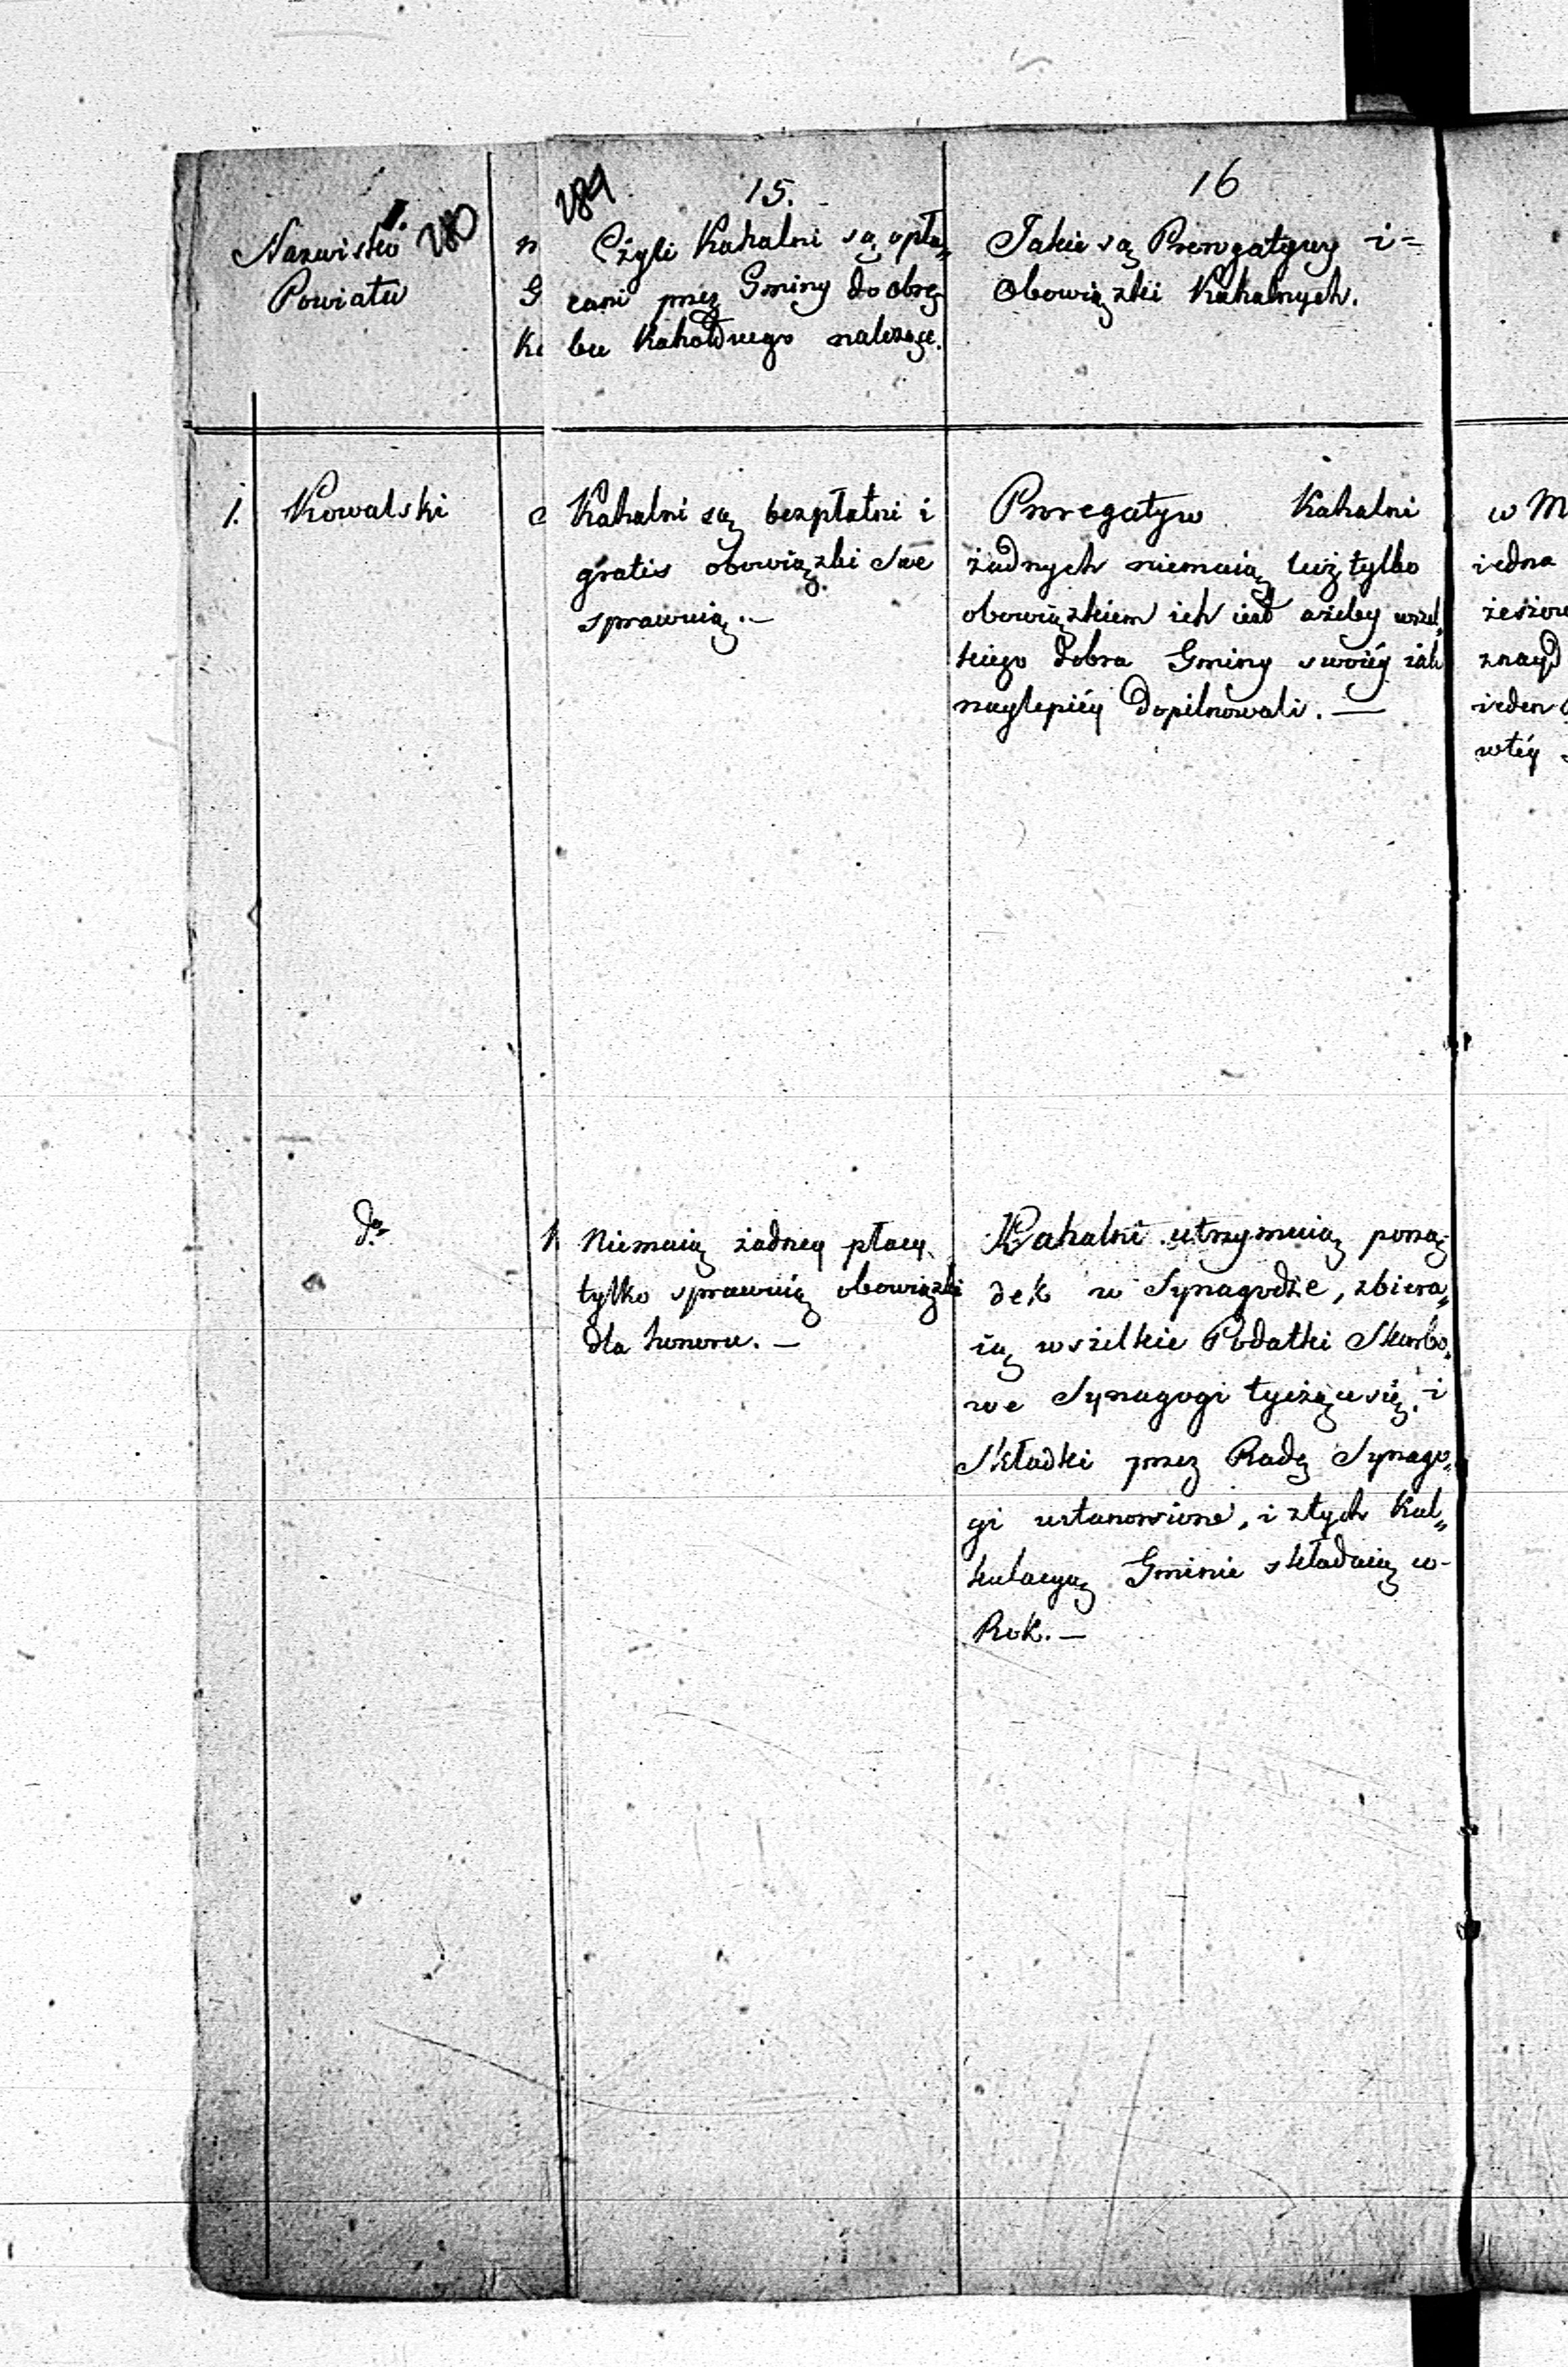 Nazwisko
Powiatu
280
n
G
Ka
289
15.
Czyli Kahalni są opła„
cani przez Gminy do obrę
bu Kahalnego należące.
16
Jakie są Prerogatywy i=
Obowiązki Kahalnych.
1. Kowalski
Kahalni są bezpłatni i
gratis obowiązki swe
sprawuią.—
Prerogatyw Kahalni
żadnych niemaią lecz tylko
obowiązkiem ich iest ażeby wszel„
kiego dobra Gminy swoiéy iak
naylepiéy dopilnowali. —
w M
iedna
żeszow
znayd
ieden
wtéy
do
Niemaią żadney płacy
tylko sprawuią obowiązki
dla honoru. —
Kahalni utrzymuią porzą
dek w Synagodze, zbiera„
ią wszelkie Podatki Skarbo„
we Synagogi tyczące się, i
Składki przez Radę Synago„
gi ustanowione, i z tych Kal„
kulacyą Gminie składaią w-
Rok. —